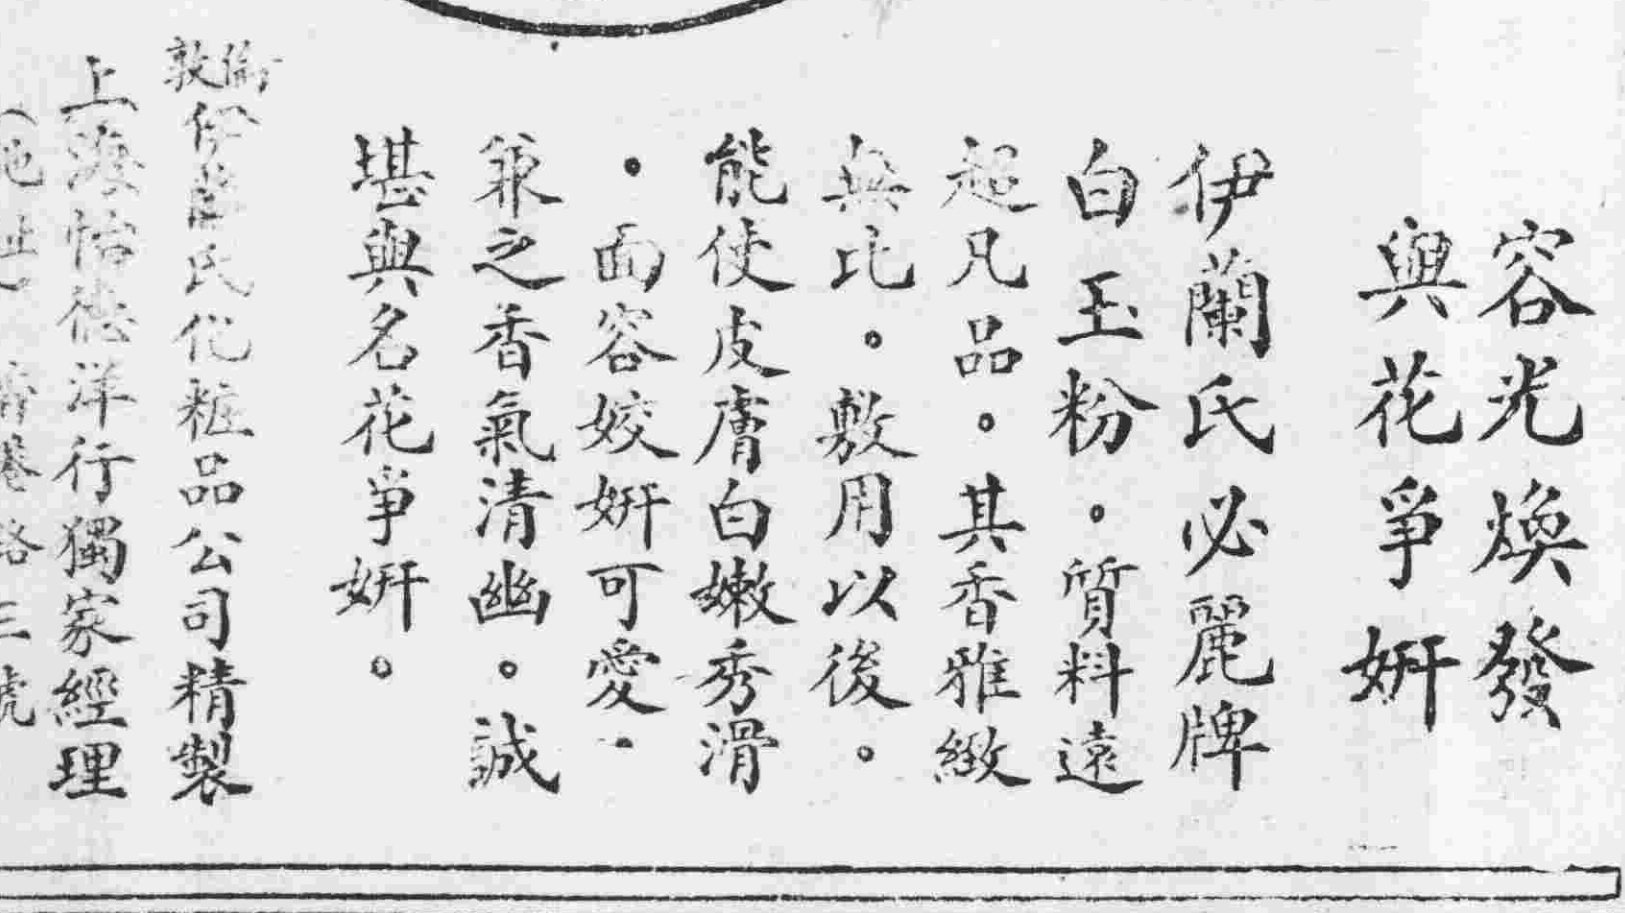 容光煥發
與花爭姸
伊蘭氏必麗牌
白玉粉。質料遠
超凡品。其香雅緻
無比。敷用以後。
能使皮膚白嫩秀滑
。面容姣姸可愛。
兼之香氣清幽。誠
堪與名花爭姸。
倫敦伊蘭氏化粧品公司精製
上海怡德洋行獨家經理
(地址)香港路三號